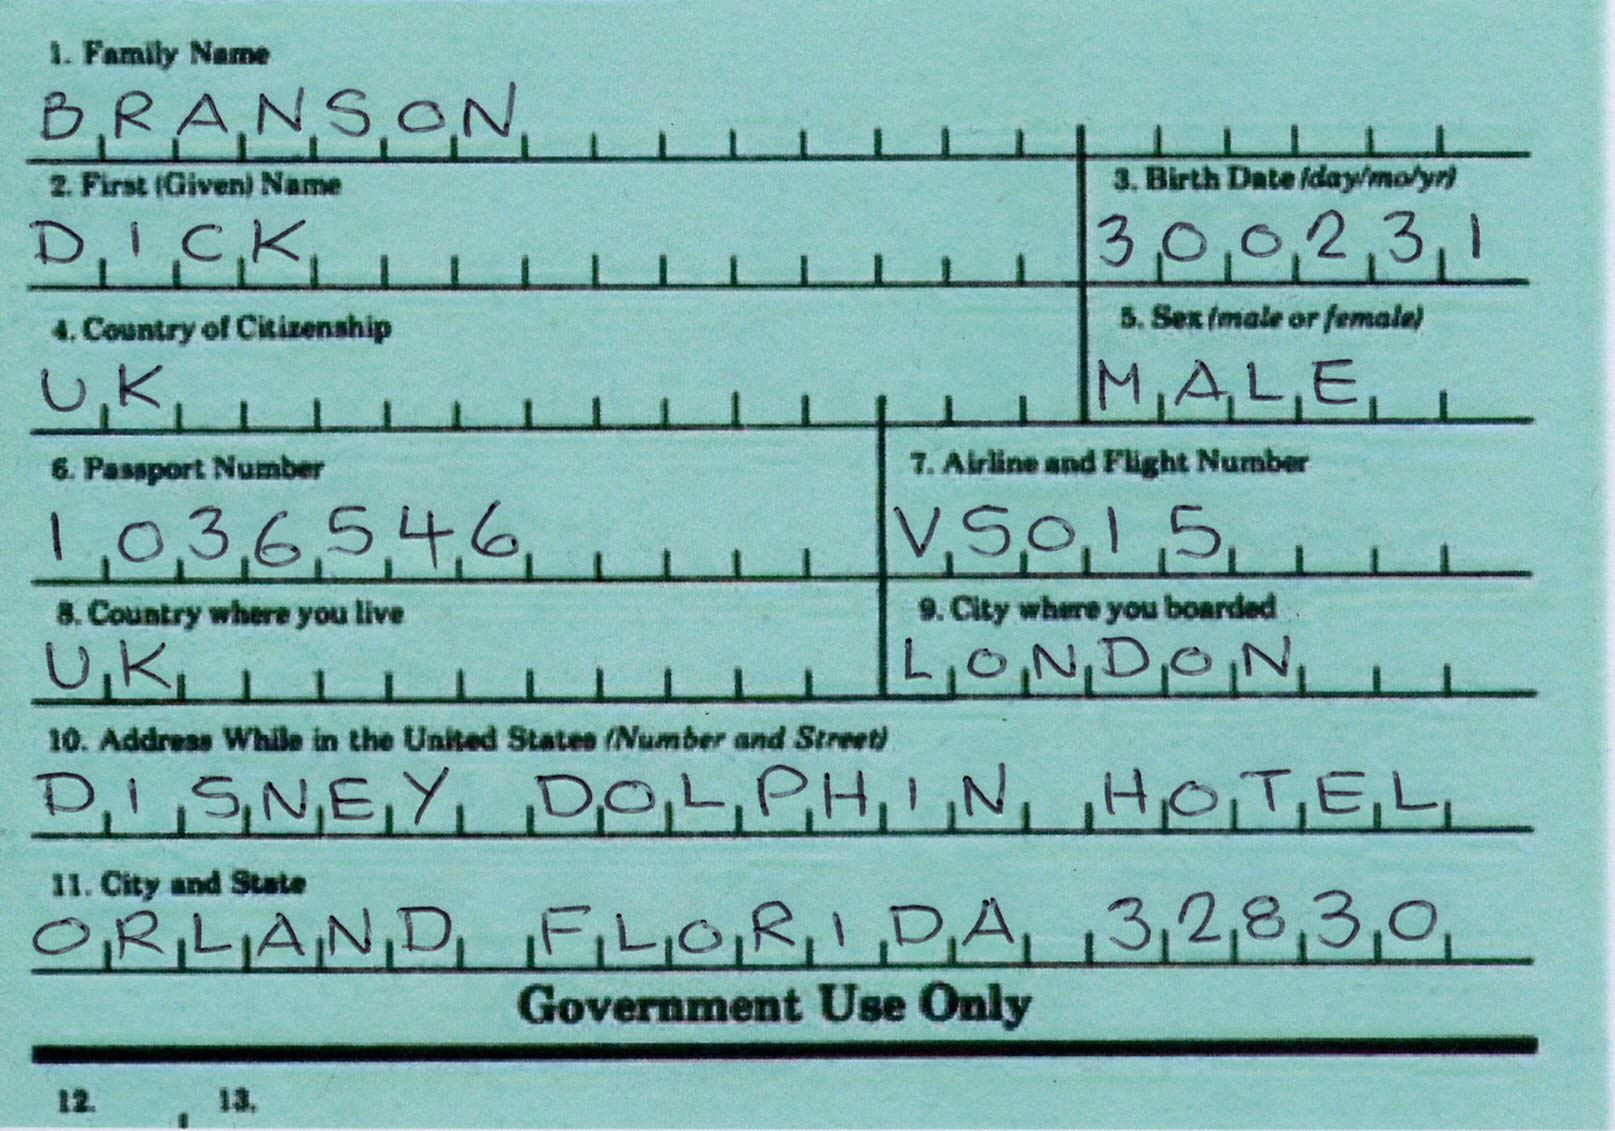 1. Family Name
BRANSON
2. First (Given) Name 3. Birth Date (day/mo/yr)
DICK 300231
4. Country of Citizenship 5. Sex (male or female)
UK MALE
6. Passport Number 7. Airline and Flight Number
1036546 VS015
8. Country where you live 9. City where you boarded
UK LONDON
10. Address While in the United States (Number and Street)
DISNEY DOLPHIN HOTEL
11. City and State
ORLAND FLORIDA 32830
Government Use Only
12. 13.